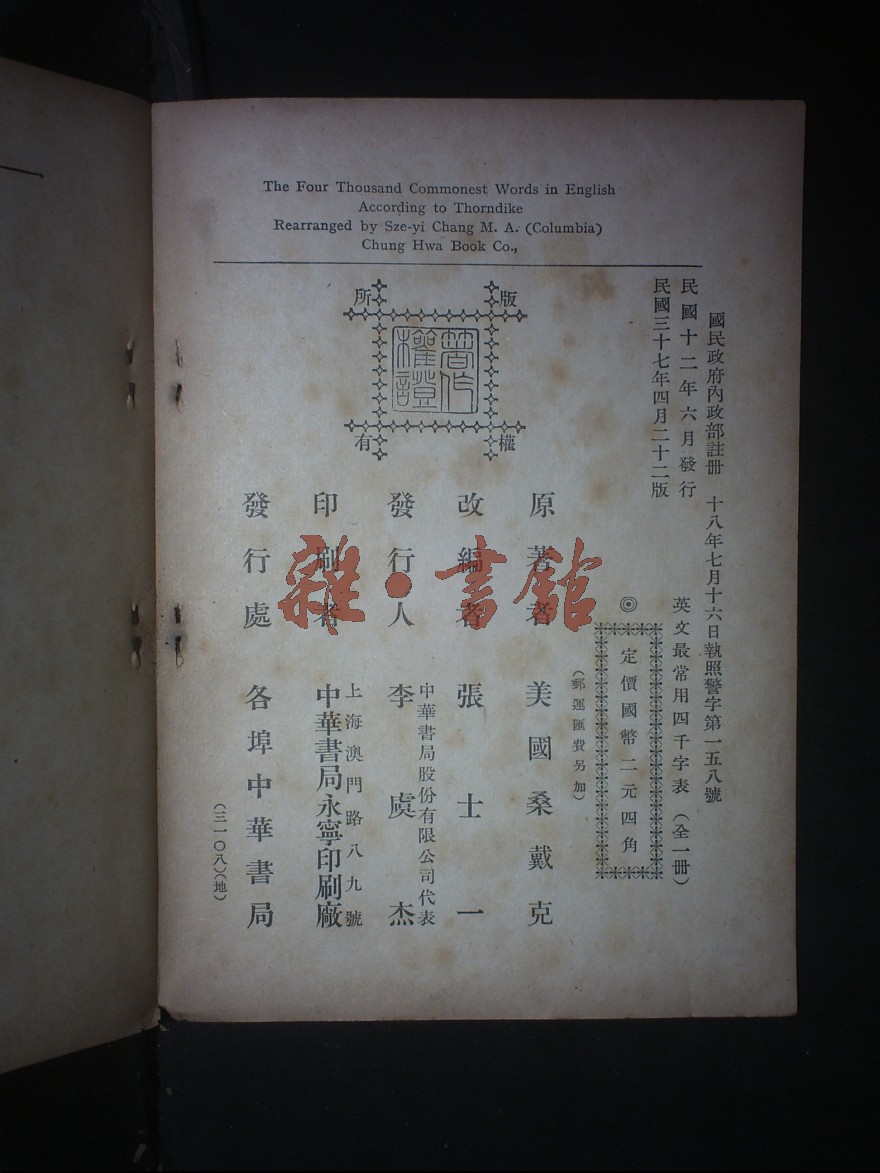 The Four Thousand Commonest Words in English
According to Thorndike
Rearranged by Sze-yi Chang M. A. (Columbia)
Chung Hwa Book Co.,
國民政府內政部註冊 十八年七月十六日執照警字第一五八號
民國十二年六月發行
民國三十七年四月二十二版
版權所有
著作權證
英文最常用四千字表(全一冊)
◎定價國幣二元四角
(郵運匯費另加)
原著者 美國桑戴克
改編者 張士一
中華書局股份有限公司代表
發行人 李虞杰
上海澳門路八九號
印刷者 中華書局永寧印刷廠
發行處 各埠中華書局
(三一〇八)(地)
雜·書館